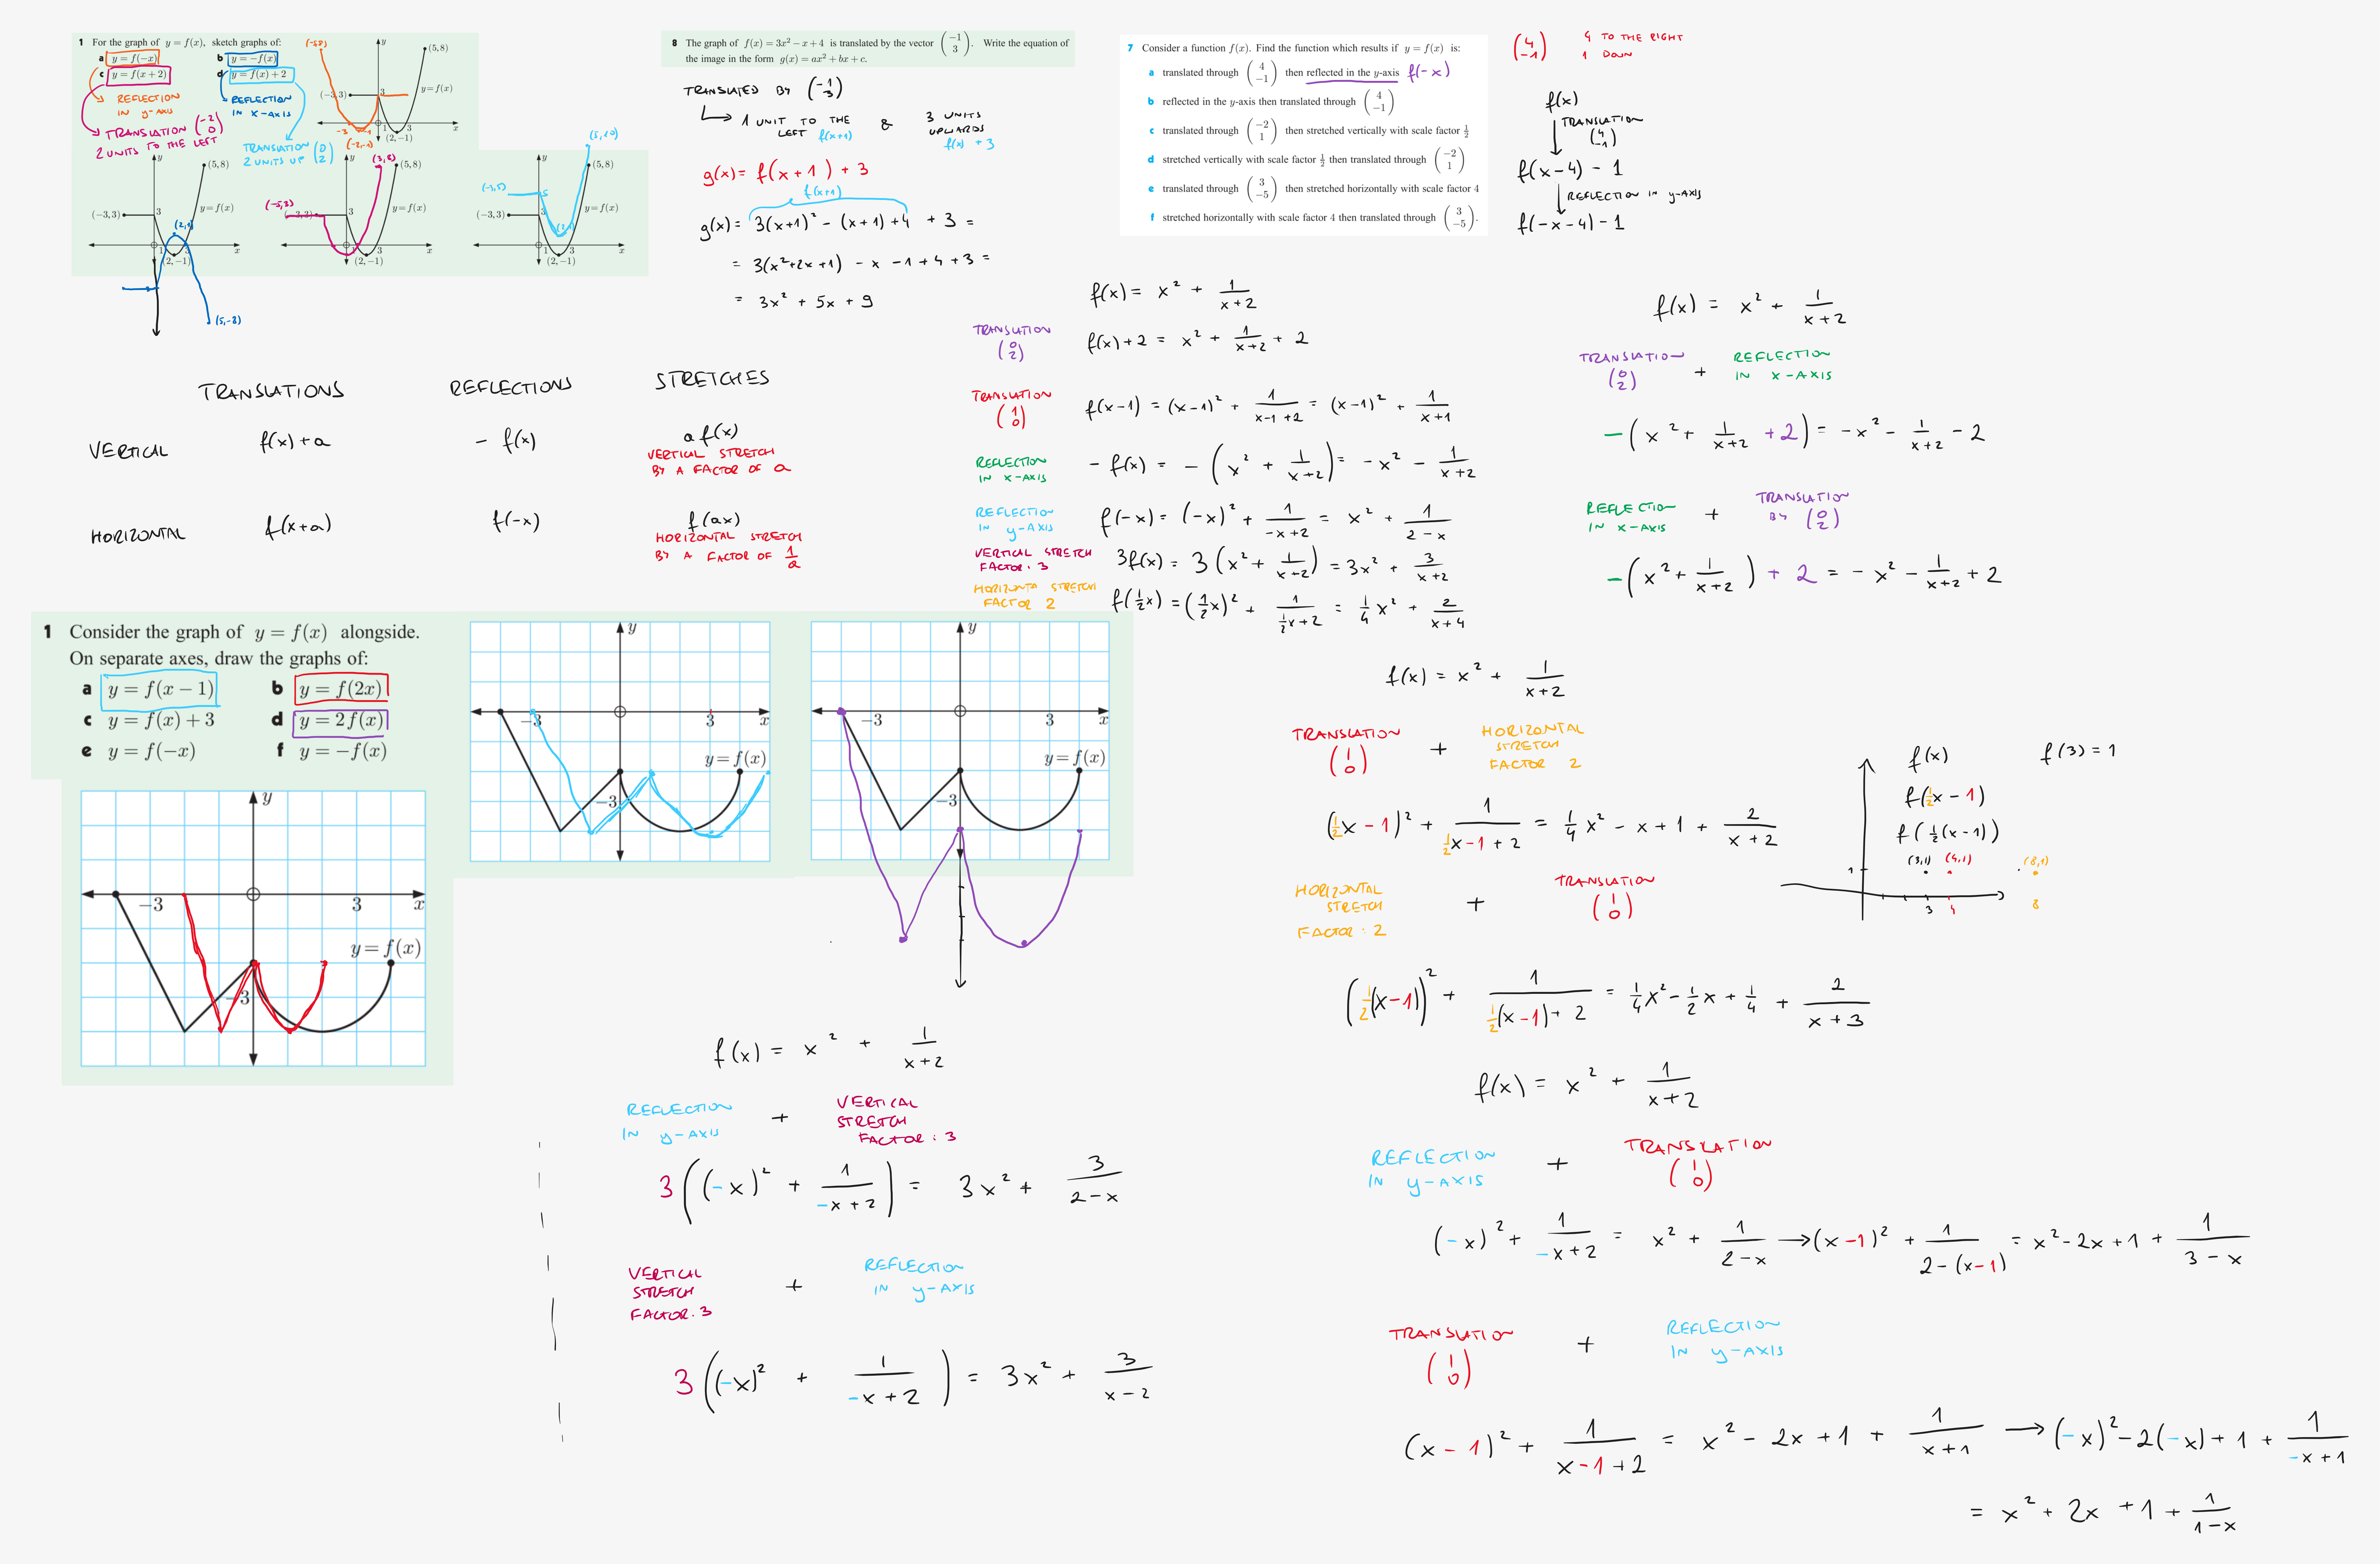 1 For the graph of y = f(x), sketch graphs of:
a y = f(−x) b y = −f(x)
c y = f(x + 2) d y = f(x) + 2
REFLECTION IN y-AXIS
REFLECTION IN X-AXIS
TRANSLATION (-2 0)
2 UNITS TO THE LEFT
TRANSLATION (0 2)
2 UNITS UP
(-5,8)
y
(5, 8)
(−3, 3)
3
y = f(x)
-3
-1
1
3
x
(2, −1)
(-2,-1)
y
(5, 8)
(−3, 3)
3
y = f(x)
(2,1)
1
3
x
(2, −1)
-3
(5,-8)
y
(3,8)
(5, 8)
(-5,3)
(−3, 3)
3
y = f(x)
1
3
x
(2, −1)
(5,10)
y
(5, 8)
(-3,5)
5
(−3, 3)
3
y = f(x)
(2,1)
1
3
x
(2, −1)
8 The graph of f(x) = 3x² − x + 4 is translated by the vector (−1 3). Write the equation of
the image in the form g(x) = ax² + bx + c.
TRANSLATED BY (-1 3)
1 UNIT TO THE LEFT f(x+1) & 3 UNITS UPWARDS f(x) + 3
g(x) = f(x+1) + 3
f(x+1)
g(x) = 3(x+1)² - (x+1) + 4 + 3 =
= 3(x²+2x+1) - x - 1 + 4 + 3 =
= 3x² + 5x + 9
7 Consider a function f(x). Find the function which results if y = f(x) is:
a translated through (4 −1) then reflected in the y-axis f(-x)
b reflected in the y-axis then translated through (4 −1)
c translated through (−2 1) then stretched vertically with scale factor 1/2
d stretched vertically with scale factor 1/2 then translated through (−2 1)
e translated through (3 −5) then stretched horizontally with scale factor 4
f stretched horizontally with scale factor 4 then translated through (3 −5).
(4 -1) 4 TO THE RIGHT
1 DOWN
f(x)
TRANSLATION (4 -1)
f(x-4) - 1
REFLECTION IN y-AXIS
f(-x-4) - 1
TRANSLATIONS REFLECTIONS STRETCHES
VERTICAL f(x)+a - f(x) a f(x)
VERTICAL STRETCH
BY A FACTOR OF a
HORIZONTAL f(x+a) f(-x) f(ax)
HORIZONTAL STRETCH
BY A FACTOR OF 1/a
f(x) = x² + 1/(x+2)
TRANSLATION (0 2) f(x)+2 = x² + 1/(x+2) + 2
TRANSLATION (1 0) f(x-1) = (x-1)² + 1/(x-1+2) = (x-1)² + 1/(x+1)
REFLECTION IN X-AXIS - f(x) = - (x² + 1/(x+2)) = -x² - 1/(x+2)
REFLECTION IN y-AXIS f(-x) = (-x)² + 1/(-x+2) = x² + 1/(2-x)
VERTICAL STRETCH FACTOR: 3 3f(x) = 3 (x² + 1/(x+2)) = 3x² + 3/(x+2)
HORIZONTA STRETCH FACTOR 2 f(1/2x) = (1/2x)² + 1/(1/2x+2) = 1/4x² + 2/(x+4)
f(x) = x² + 1/(x+2)
TRANSLATION (0 2) + REFLECTION IN X-AXIS
-(x² + 1/(x+2) +2) = -x² - 1/(x+2) - 2
REFLECTION IN X-AXIS + TRANSLATION BY (0 2)
-(x² + 1/(x+2)) + 2 = - x² - 1/(x+2) + 2
1 Consider the graph of y = f(x) alongside.
On separate axes, draw the graphs of:
a y = f(x − 1) b y = f(2x)
c y = f(x) + 3 d y = 2f(x)
e y = f(−x) f y = −f(x)
y
−3
3
x
y = f(x)
−3
y
−3
3
x
y = f(x)
−3
y
−3
3
x
y = f(x)
−3
f(x) = x² + 1/(x+2)
TRANSLATION (1 0) + HORIZONTAL STRETCH FACTOR 2
(1/2x - 1)² + 1/(1/2x - 1 + 2) = 1/4x² - x + 1 + 2/(x+2)
HORIZONTAL STRETCH FACTOR: 2 + TRANSLATION (1 0)
(1/2(x-1))² + 1/(1/2(x-1)+2) = 1/4x² - 1/2x + 1/4 + 2/(x+3)
f(x) f(3) = 1
f(1/2x - 1)
f(1/2(x-1))
(3,1) (4,1) (8,1)
1
3 4 8
f(x) = x² + 1/(x+2)
REFLECTION IN y-AXIS + VERTICAL STRETCH FACTOR: 3
3((-x)² + 1/(-x+2)) = 3x² + 3/(2-x)
VERTICAL STRETCH FACTOR: 3 + REFLECTION IN y-AXIS
3((-x)² + 1/(-x+2)) = 3x² + 3/(x-2)
f(x) = x² + 1/(x+2)
REFLECTION IN y-AXIS + TRANSLATION (1 0)
(-x)² + 1/(-x+2) = x² + 1/(2-x) → (x-1)² + 1/(2-(x-1)) = x² - 2x + 1 + 1/(3-x)
TRANSLATION (1 0) + REFLECTION IN y-AXIS
(x-1)² + 1/(x-1+2) = x² - 2x + 1 + 1/(x+1) → (-x)² - 2(-x) + 1 + 1/(-x+1)
= x² + 2x + 1 + 1/(1-x)